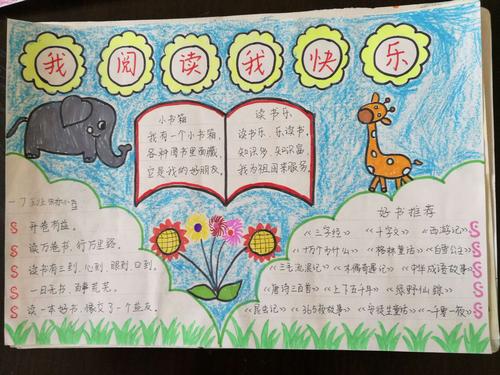 我阅读我快乐
小书箱
我有一个小书箱，
各种图书里面藏，
它是我的好朋友。
读书乐
读书乐、乐读书，
知识多、知识富
我为祖国来服务。
开卷有益。
读万卷书，行万里路。
读书有三到，心到、眼到、口到。
一日无书，百事荒芜。
读一本好书，像交了一个益友。
好书推荐
《三字经》 《千字文》 《西游记》
《十万个为什么》 《格林童话》 《白雪公主》
《三毛流浪记》 《木偶奇遇记》 《中华成语故事》
《唐诗三百首》 《上下五千年》 《绿野仙踪》
《昆虫记》 《365夜故事》 《安徒生童话》 《一千零一夜》